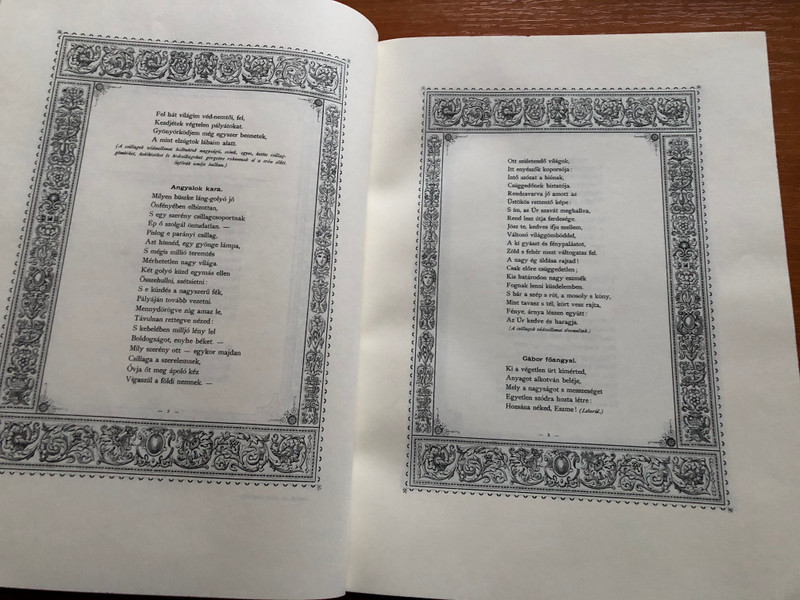 Fel hát világim véd-nemtői, fel,
Kezdjétek végtelen pályátokat.
Gyönyörködjem még egyszer bennetek,
A mint elzúgtok lábaim alatt.
(A csillagok védszellemei különböző nagyságú, színű, egyes, kettős csillag-
gömböket, üstökösöket és ködcsillagokat görgetve rohannak el a trón előtt.
Szférák zenéje halkan.)
Angyalok kara.
Milyen büszke láng-golyó jő
Önfényében elbizottan,
S egy szerény csillagcsoportnak
Ép ő szolgál öntudatlan. —
Pislog e parányi csillag,
Azt hinnéd, egy gyönge lámpa,
S mégis millió teremtés
Mérhetetlen nagy világa.
Két golyó küzd egymás ellen
Összehullni, szétsietni:
S e küzdés a nagyszerű fék,
Pályáján tovább vezetni.
Mennydörögve zúg amaz le,
Távulnan rettegve nézed:
S kebelében millió lény lel
Boldogságot, enyhe béket. —
Mily szerény ott — egykor majdan
Csillaga a szerelemnek,
Óvja őt meg ápoló kéz
Vigaszúl a földi nemnek. —
— 2 —
Ott születendő világok,
Itt enyészők koporsója:
Intő szózat a hiúnak,
Csüggedőnek biztatója.
Rendzavarva jő amott az
Üstökös rettentő képe:
S ím, az Úr szavát meghallva,
Rend lesz útja ferdesége.
Jösz te, kedves ifju szellem,
Változó világgömböddel,
A ki gyászt és fénypalástot,
Zöld s fehér mezt váltogatsz fel.
A nagy ég áldása rajtad!
Csak előre csüggedetlen;
Kis határodon nagy eszmék
Fognak lenni küzdelemben.
S bár a szép s rút, a mosoly s köny,
Mint tavasz s tél, kört vesz rajta,
Fénye, árnya lészen együtt:
Az Úr kedve és haragja.
(A csillagok védszellemei elvonultak.)
Gábor főangyal.
Ki a végetlen űrt kimérted,
Anyagot alkotván beléje,
Mely a nagyságot s messzeséget
Egyetlen szódra hozta létre:
Hozsána néked, Eszme! (Leborúl.)
— 3 —